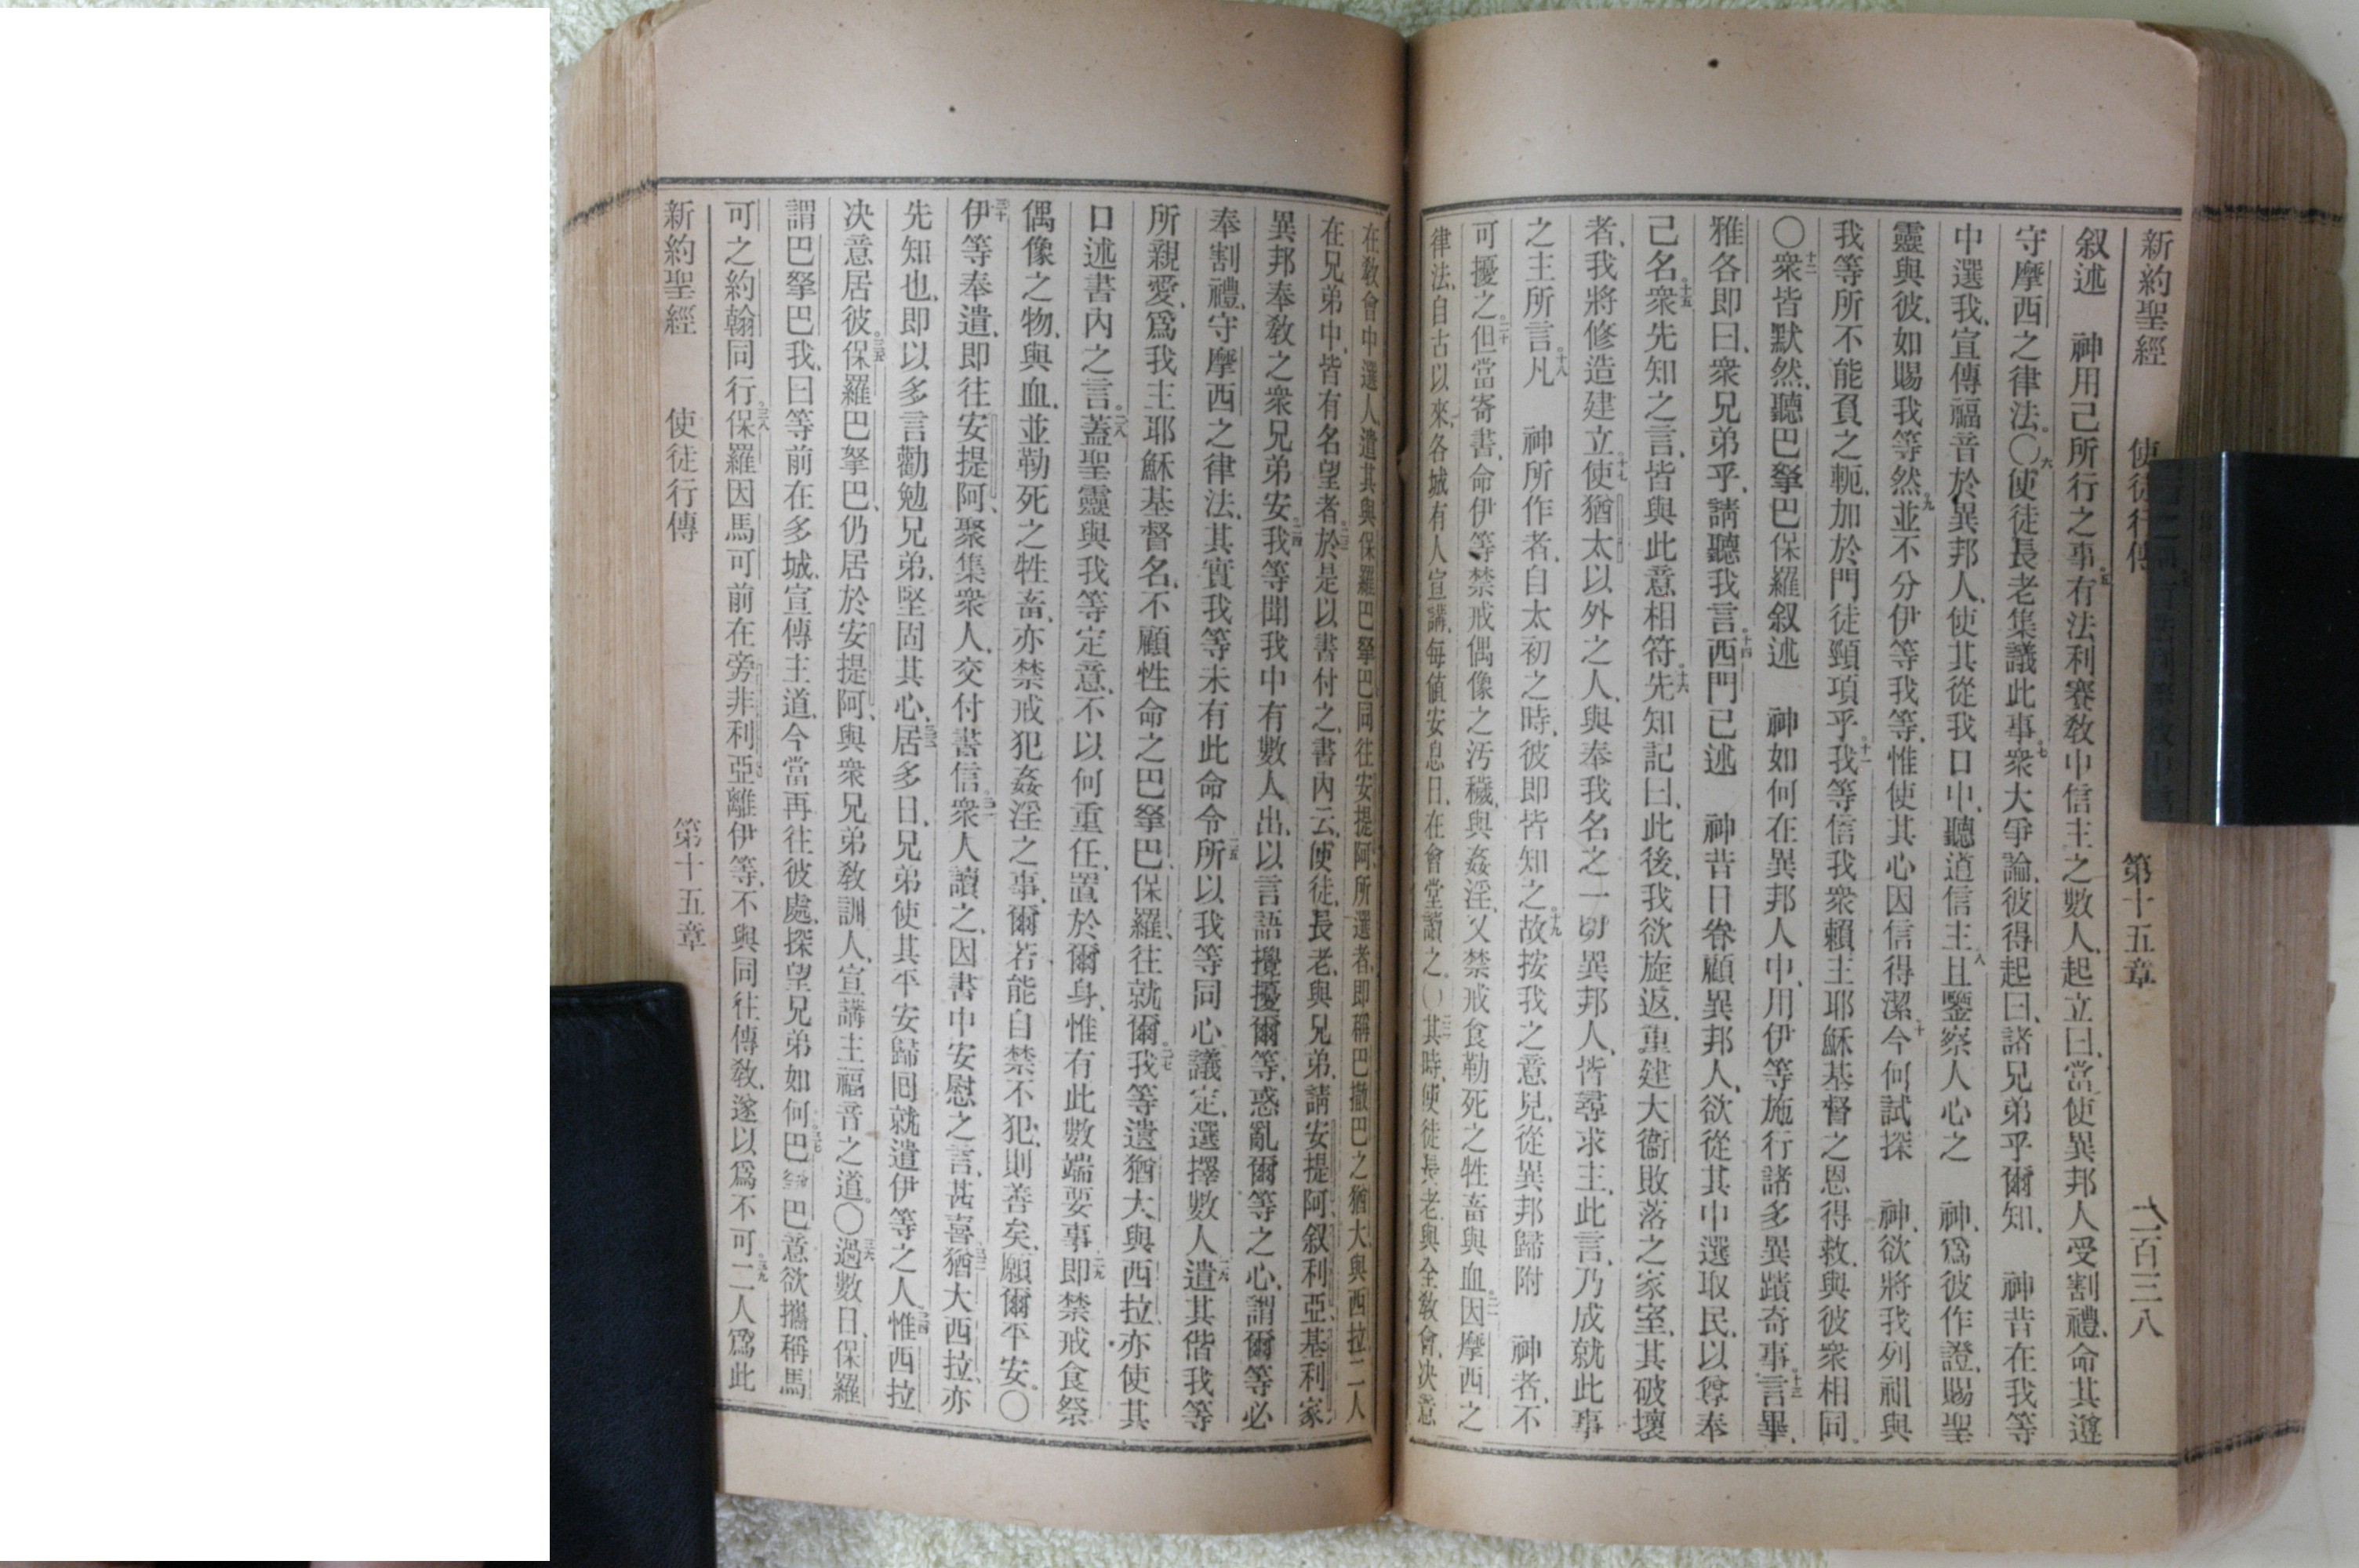 新約聖經 使徒行傳 第十五章 一百三八
叙述 神用己所行之事。五有法利賽敎中信主之數人、起立曰、當使異邦人受割禮、命其遵
守摩西之律法。〇六使徒長老集議此事。七衆大爭論、彼得起曰、諸兄弟乎、爾知、 神昔在我等
中選我、宣傳福音於異邦人、使其從我口中、聽道信主、八且鑒察人心之 神、爲彼作證、賜聖
靈與彼、如賜我等然、九並不分伊等我等、惟使其心因信得潔、十今何試探 神、欲將我列祖與
我等所不能負之軛、加於門徒頸項乎。十一我等信我衆賴主耶穌基督之恩得救、與彼衆相同。
〇十二衆皆默然、聽巴拏巴保羅叙述 神如何在異邦人中、用伊等施行諸多異蹟奇事。十三言畢、
雅各卽曰、衆兄弟乎、請聽我言。十四西門已述 神昔日眷顧異邦人、欲從其中選取民、以尊奉
己名。十五衆先知之言、皆與此意相符。十六先知記曰、此後、我欲旋返、重建大衞敗落之家室、其破壞
者、我將修造建立。十七使猶太以外之人、與奉我名之一切異邦人、皆尋求主、此言、乃成就此事
之主所言。十八凡 神所作者、自太初之時、彼卽皆知之。十九故按我之意見、從異邦歸附 神者、不
可擾之。二十但當寄書、命伊等禁戒偶像之汚穢、與姦淫、又禁戒食勒死之牲畜與血。二一因摩西之
律法、自古以來、各城有人宣講、每値安息日、在會堂讀之。〇二二其時、使徒長老、與全敎會、決意
在敎會中選人、遣其與保羅巴拏巴同往安提阿、所選者、卽稱巴撒巴之猶大、與西拉二人
在兄弟中、皆有名望者。二三於是以書付之、書內云、使徒、長老、與兄弟、請安提阿、叙利亞、基利家
異邦奉敎之衆兄弟安。二四我等聞我中有數人出、以言語攪擾爾等、惑亂爾等之心、謂爾等必
奉割禮、守摩西之律法、其實我等未有此命令、二五所以我等同心議定、選擇數人、二六遣其偕我等
所親愛、爲我主耶穌基督名、不顧性命之巴拏巴、保羅、往就爾。二七我等遣猶大與西拉、亦使其
口述書內之言。二八蓋聖靈與我等定意、不以何重任、置於爾身、惟有此數端要事、二九卽禁戒食祭
偶像之物、與血、並勒死之牲畜、亦禁戒犯姦淫之事、爾若能自禁不犯、則善矣、願爾平安。〇
三十伊等奉遣、卽往安提阿、聚集衆人、交付書信。三一衆人讀之、因書中安慰之言、甚喜。三二猶大西拉、亦
先知也、卽以多言勸勉兄弟、堅固其心。三三居多日、兄弟使其平安歸囘就遣伊等之人。三四惟西拉
決意居彼。三五保羅巴拏巴、仍居於安提阿、與衆兄弟敎訓人、宣講主福音之道。〇三六過數日、保羅
謂巴拏巴我、曰等前在多城、宣傳主道、今當再往彼處、探望兄弟如何。三七巴拏巴意欲攜稱馬
可之約翰同行。三八保羅因馬可前在旁非利亞離伊等、不與同往傳敎、遂以爲不可。三九二人爲此
新約聖經 使徒行傳 第十五章